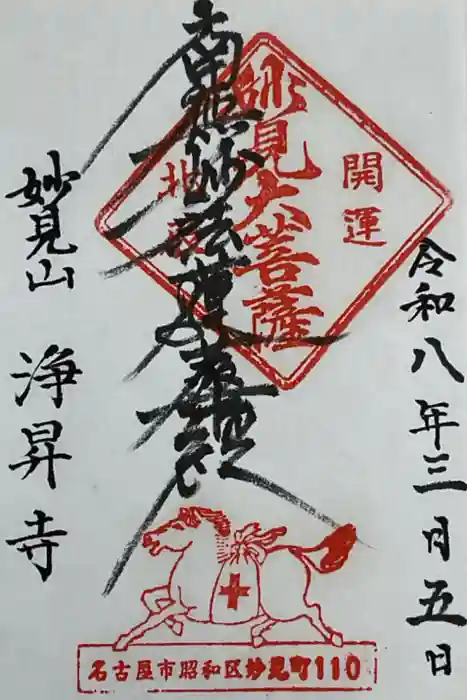 令和八年三月五日
開運
妙見大菩薩
南無妙法蓮華経
妙見山
浄昇寺
名古屋市昭和区妙見町110